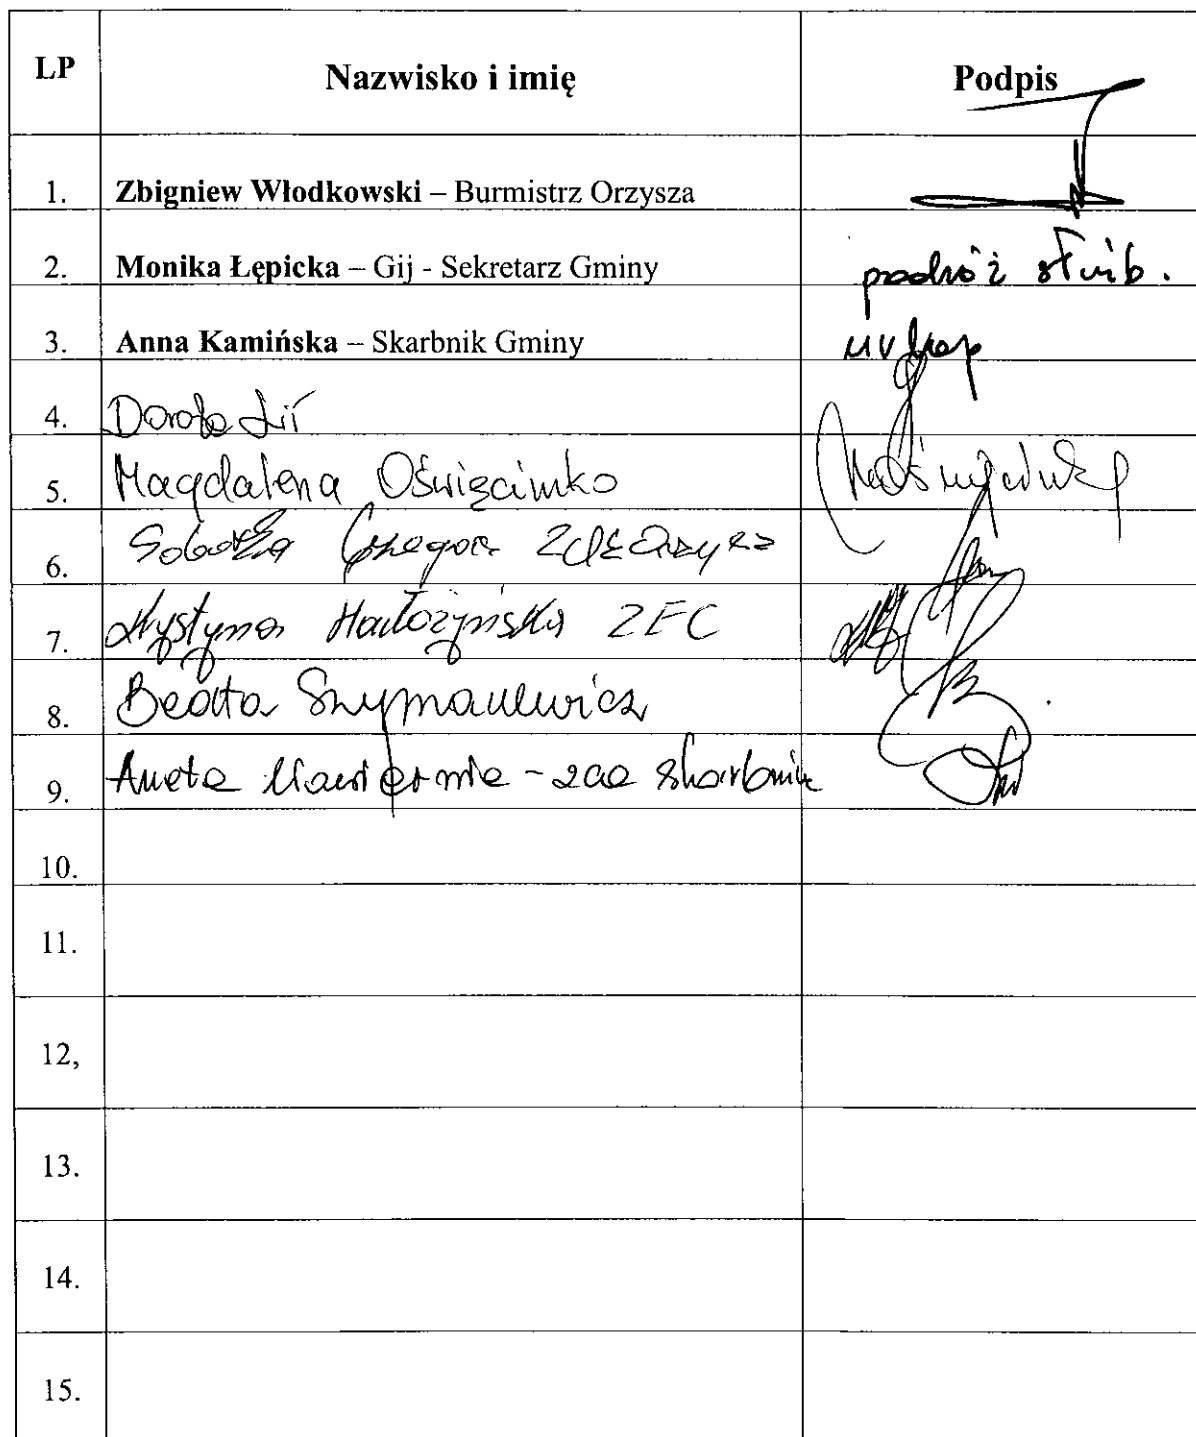 LP Nazwisko i imię Podpis
1. Zbigniew Włodkowski – Burmistrz Orzysza
2. Monika Łępicka – Gij - Sekretarz Gminy podróż służb.
3. Anna Kamińska – Skarbnik Gminy
4. Dorota
5. Magdalena Oświęcimko
6. Grzegorz
7. Krystyna ZEC
8. Beata Szymanewicz
9. Aneta
10.
11.
12,
13.
14.
15.